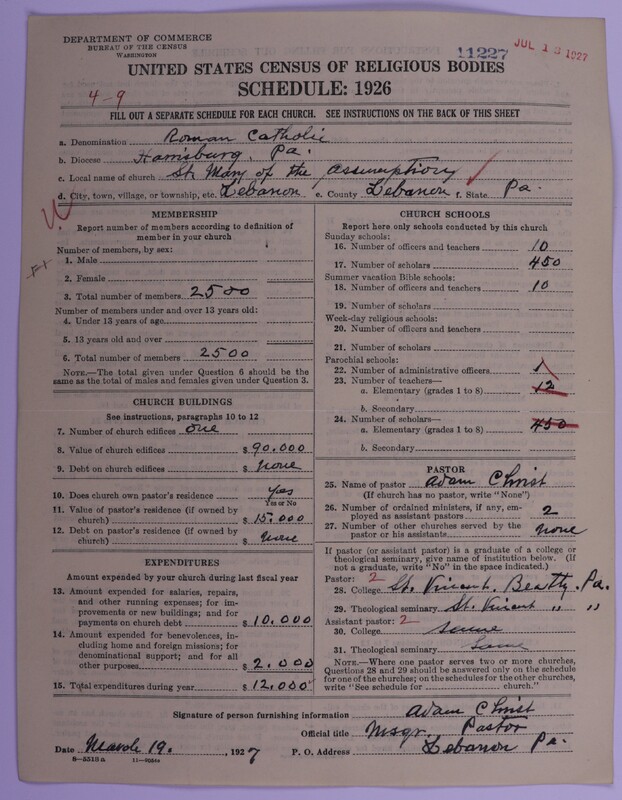 DEPARTMENT OF COMMERCE
BUREAU OF THE CENSUS
WASHINGTON
11227
JUL 18 1927
UNITED STATES CENSUS OF RELIGIOUS BODIES
SCHEDULE: 1926
4-9
FILL OUT A SEPARATE SCHEDULE FOR EACH CHURCH. SEE INSTRUCTIONS ON THE BACK OF THIS SHEET
a. Denomination Roman Catholic
b. Diocese Harrisburg, Pa.
c. Local name of church St. Mary of the Assumption
d. City, town, village, or township, etc. Lebanon e. County Lebanon f. State Pa.
MEMBERSHIP
Report number of members according to definition of
member in your church
Number of members, by sex:
1. Male
2. Female
3. Total number of members 2500
Number of members under and over 13 years old:
4. Under 13 years of age
5. 13 years old and over
6. Total number of members 2500
NOTE.—The total given under Question 6 should be the
same as the total of males and females given under Question 3.
CHURCH BUILDINGS
See instructions, paragraphs 10 to 12
7. Number of church edifices one
8. Value of church edifices $ 90.000
9. Debt on church edifices $ none
10. Does church own pastor's residence yes
Yes or No
11. Value of pastor's residence (if owned by
church) $ 15.000
12. Debt on pastor's residence (if owned by
church) $ none
EXPENDITURES
Amount expended by your church during last fiscal year
13. Amount expended for salaries, repairs,
and other running expenses; for im-
provements or new buildings; and for
payments on church debt $ 10.000
14. Amount expended for benevolences, in-
cluding home and foreign missions; for
denominational support; and for all
other purposes $ 2.000
15. Total expenditures during year $ 12,000
CHURCH SCHOOLS
Report here only schools conducted by this church
Sunday schools:
16. Number of officers and teachers 10
17. Number of scholars 450
Summer vacation Bible schools:
18. Number of officers and teachers 10
19. Number of scholars
Week-day religious schools:
20. Number of officers and teachers
21. Number of scholars
Parochial schools:
22. Number of administrative officers 1
23. Number of teachers—
a. Elementary (grades 1 to 8) 12
b. Secondary
24. Number of scholars—
a. Elementary (grades 1 to 8) 450
b. Secondary
PASTOR
25. Name of pastor Adam Christ
(If church has no pastor, write "None")
26. Number of ordained ministers, if any, em-
ployed as assistant pastors 2
27. Number of other churches served by the
pastor or his assistants none
If pastor (or assistant pastor) is a graduate of a college or
theological seminary, give name of institution below. (If
not a graduate, write "No" in the space indicated.)
Pastor: 2
28. College St. Vincent, Beatty, Pa.
29. Theological seminary St. Vincent " "
Assistant pastor: 2
30. College same
31. Theological seminary Same
NOTE.—Where one pastor serves two or more churches,
Questions 28 and 29 should be answered only on the schedule
for one of the churches; on the schedules for the other churches,
write "See schedule for church."
Signature of person furnishing information Adam Christ
Official title Msgr. Pastor
Date March 19. , 1927 P. O. Address Lebanon Pa.